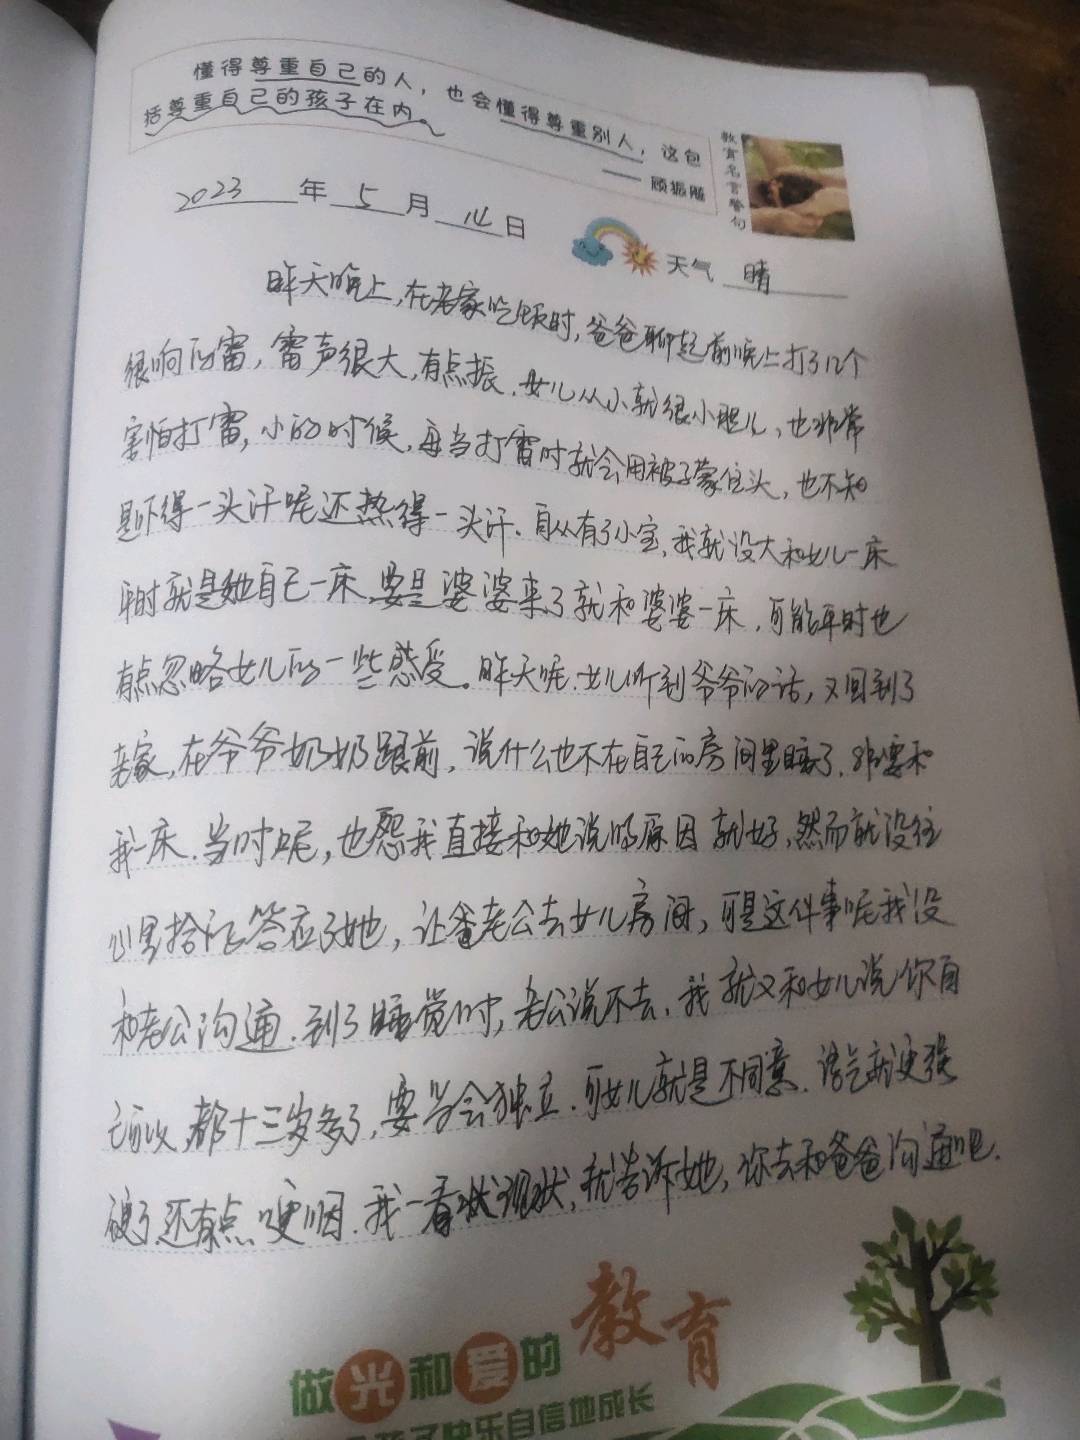 懂得尊重自己的人，也会懂得尊重别人，这包
括尊重自己的孩子在内。
—— 顾振飚
教育名言警句
2023 年 5 月 14 日
天气 晴
昨天晚上，在老家吃饭时，爸爸聊起前晚上打了几个
很响的雷，雷声很大，有点振．女儿从小就很小胆儿，也非常
害怕打雷，小的时候，每当打雷时就会用被子蒙住头，也不知
是吓得一头汗呢还热得一头汗．自从有了小宝，我就没大和女儿一床
平时就是她自己一床，要是婆婆来了就和婆婆一床．可能平时也
有点忽略女儿的一些感受。昨天呢．女儿听到爷爷的话，又回到了
老家，在爷爷奶奶跟前，说什么也不在自己的房间里睡了．非要和
我一床．当时呢，也怨我直接和她说明原因就好，然而就没往
心里拾 答应了她，让爸老公去女儿房间，可是这件事呢我没
和老公沟通．到了睡觉时，老公说不去．我就又和女儿说你自
己 都十三岁多了，要学会独立．可女儿就是不同意．语气就更强
硬了．还有点哽咽．我一看状现状，就告诉她，你去和爸爸沟通吧．
做光和爱的教育
孩子快乐自信地成长